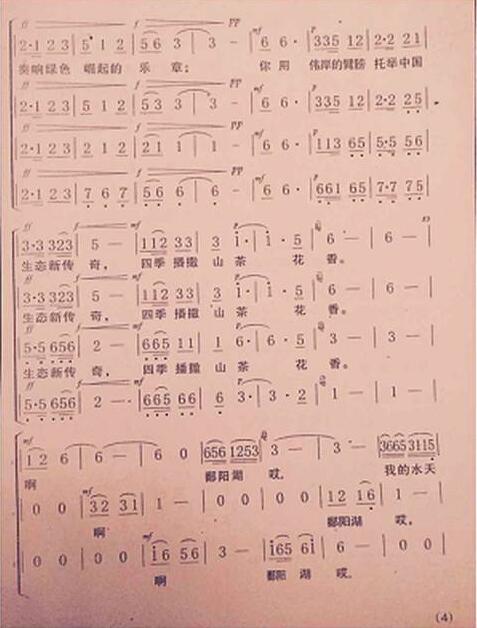 ff f pp mf p
2·1 2 3 | 5 1 2 | 5 6 3 | 3 – | 6 6· | 3 3 5 1 2 | 2·2 2 1 |
奏响绿色 崛起的 乐 章； 你 用 伟岸的臂膀 托举中国
ff f pp mf p
2·1 2 3 | 5 1 2 | 5 3 3 | 3 – | 6 6· | 3 3 5 1 2 | 2·2 2 5 |
ff f pp mf p
2·1 2 3 | 2 1 2 | 2 1 1 | 1 – | 6 6· | 1 1 3 6 5 | 5·5 5 6 |
ff f pp mf p
2·1 2 3 | 7 6 7 | 5 6 6 | 6 – | 6 6· | 6 6 1 6 5 | 7·7 7 5 |
ff f mf p
3·3 3 2 3 | 5 — | 1 1 2 3 3 | 3 1· | 1· 5 | 6 — | 6 — |
生态新传 奇， 四季 播撒 山 茶 花 香。
ff f mf p
3·3 3 2 3 | 5 — | 1 1 2 3 3 | 3 1· | 1· 5 | 6 — | 6 — |
生态新传 奇， 四季 播撒 山 茶 花 香。
ff f mf p
5·5 6 5 6 | 2 — | 6 6 5 1 1 | 1 6· | 6· 5 | 3 — | 3 — |
生态新传 奇， 四季 播撒 山 茶 花 香。
ff f mf p
5·5 6 5 6 | 2 — | 6 6 5 6 6 | 6 3· | 3· 2 | 1 — | 1 — |
mf
1 2 6 | 6 — | 6 0 | 6 5 6 1 2 5 3 | 3 — | 3 — | 3 6 6 5 3 1 1 5 |
啊 鄱阳湖 哎， 我的水天
mf
0 0 | 3 2 3 1 | 1 — | 0 0 | 0 0 | 1 2 1 6 | 1 — |
啊 鄱阳湖 哎，
mf
0 0 | 0 0 | 1 6 5 6 | 3 — | 1 6 5 6 1 | 6 — | 0 0 |
啊 鄱阳 湖 哎。
(4)